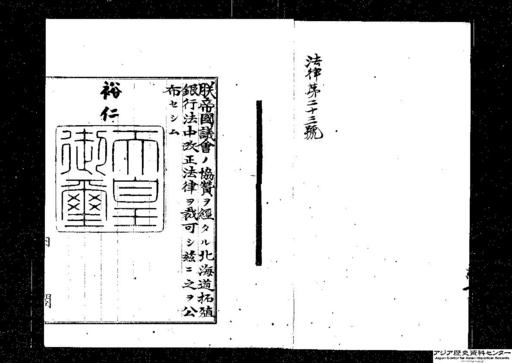 法律第二十三號
朕帝國議會ノ協贊ヲ經タル北海道拓殖
銀行法中改正法律ヲ裁可シ玆ニ之ヲ公
布セシム
裕仁
天皇
御璽
内閣
アジア歴史資料センター
Japan Center for Asian Historical Records